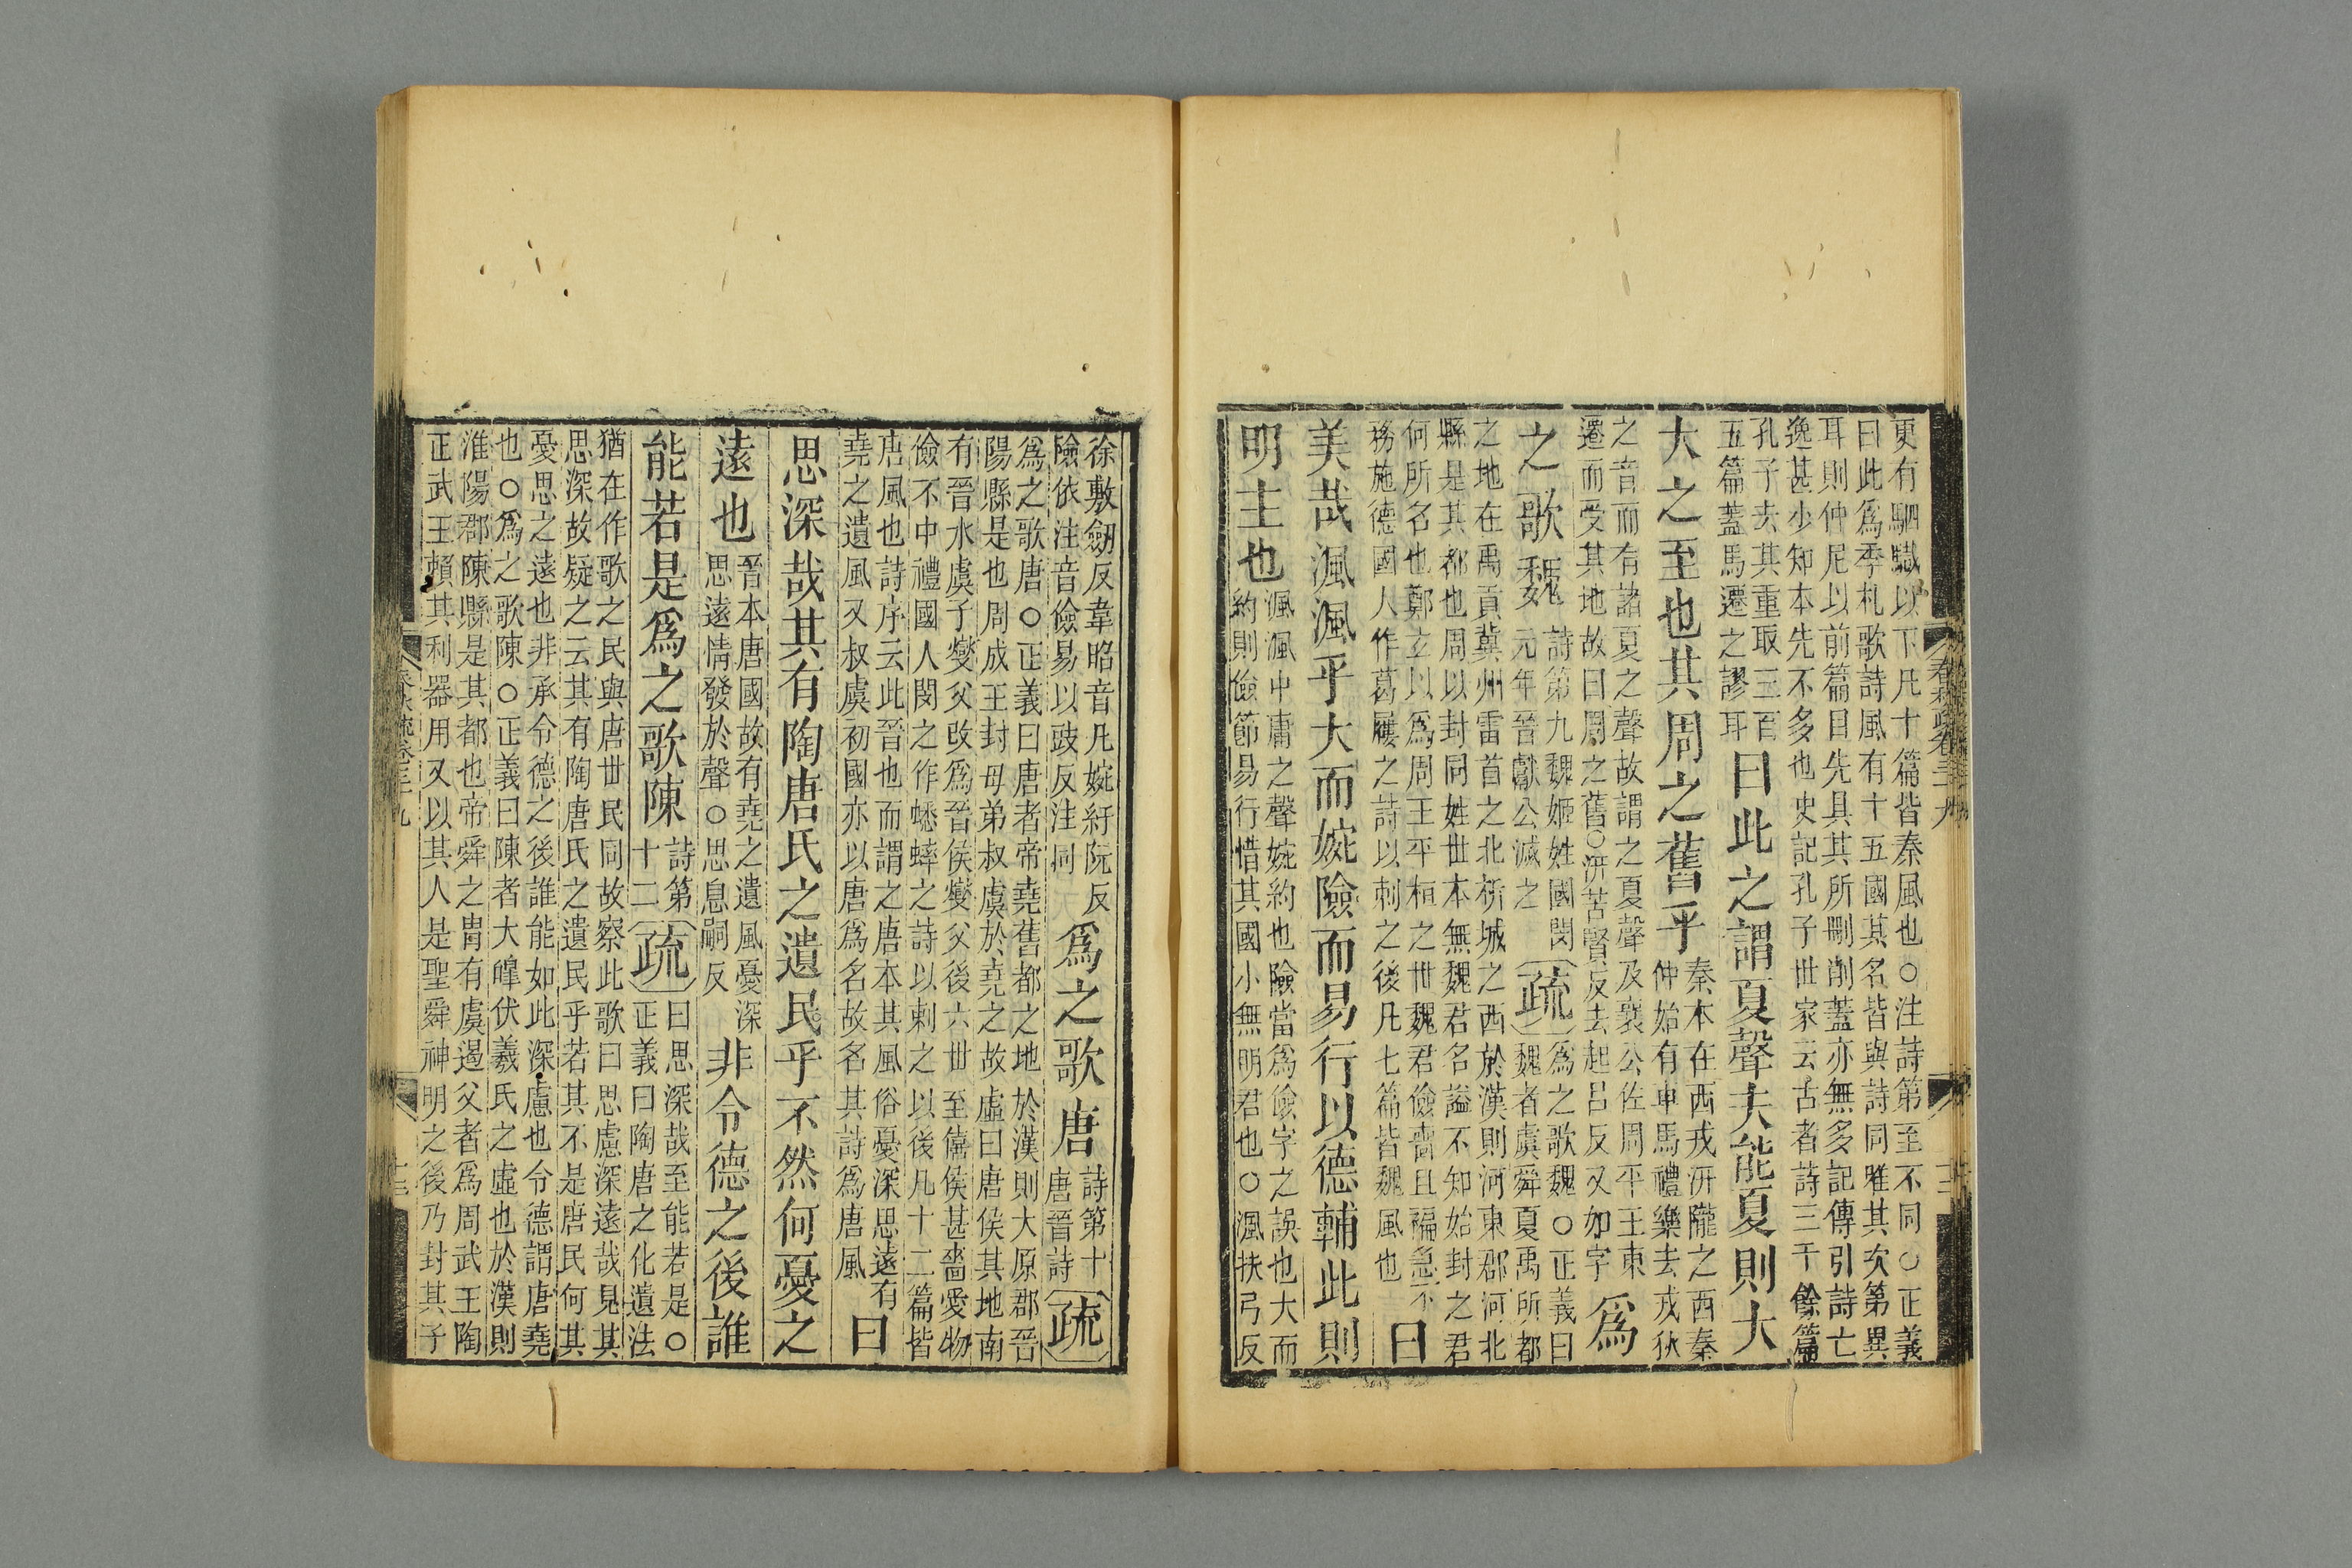 更有駟驖以下凡十篇皆秦風也○注詩第至不同○正義
曰此爲季札歌詩風有十五國其名皆與詩同雅其次第異
耳則仲尼以前篇目先具其所刪削蓋亦無多記傳引詩亡
逸甚少知本先不多也史記孔子世家云古者詩三千餘篇
孔子去其重取三百
五篇蓋馬遷之謬耳
曰此之謂夏聲夫能夏則大
大之至也其周之舊乎
秦本在西戎汧隴之西秦
仲始有車馬禮樂去戎狄
之音而有諸夏之聲故謂之夏聲及襄公佐周平王東
遷而受其地故曰周之舊○汧苦賢反去起呂反又如字
爲
之歌魏
詩第九魏姬姓國閔
元年晉獻公滅之
疏
爲之歌魏○正義曰
魏者虞舜夏禹所都
之地在禹貢冀州雷首之北析城之西於漢則河東郡河北
縣是其都也周以封同姓世本無魏君名謚不知始封之君
何所名也鄭玄以爲周王平桓之世魏君儉嗇且褊急不
務施德國人作葛屨之詩以刺之後凡七篇皆魏風也
曰
美哉渢渢乎大而婉險而易行以德輔此則
明主也
渢渢中庸之聲婉約也險當爲儉字之誤也大而
約則儉節易行惜其國小無明君也○渢扶弓反
徐敷劒反韋昭音凡婉紆阮反
險依注音儉易以豉反注同
爲之歌唐
詩第十
唐晉詩
疏
爲之歌唐○正義曰唐者帝堯舊都之地於漢則大原郡晉
陽縣是也周成王封母弟叔虞於堯之故虛曰唐侯其地南
有晉水虞子燮父改爲晉侯燮父後六世至僖侯甚嗇愛物
儉不中禮國人閔之作蟋蟀之詩以刺之以後凡十二篇皆
唐風也詩序云此晉也而謂之唐本其風俗憂深思遠有
堯之遺風又叔虞初國亦以唐爲名故名其詩爲唐風
曰
思深哉其有陶唐氏之遺民乎不然何憂之
遠也
晉本唐國故有堯之遺風憂深
思遠情發於聲○思息嗣反
非令德之後誰
能若是爲之歌陳
詩第
十二
疏
曰思深哉至能若是○
正義曰陶唐之化遺法
猶在作歌之民與唐世民同故察此歌曰思慮深遠哉見其
思深故疑之云其有陶唐氏之遺民乎若其不是唐民何其
憂思之遠也非承令德之後誰能如此深慮也令德謂唐堯
也○爲之歌陳○正義曰陳者大皞伏羲氏之虛也於漢則
淮陽郡陳縣是其都也帝舜之胄有虞遏父者爲周武王陶
正武王賴其利器用又以其人是聖舜神明之後乃封其子